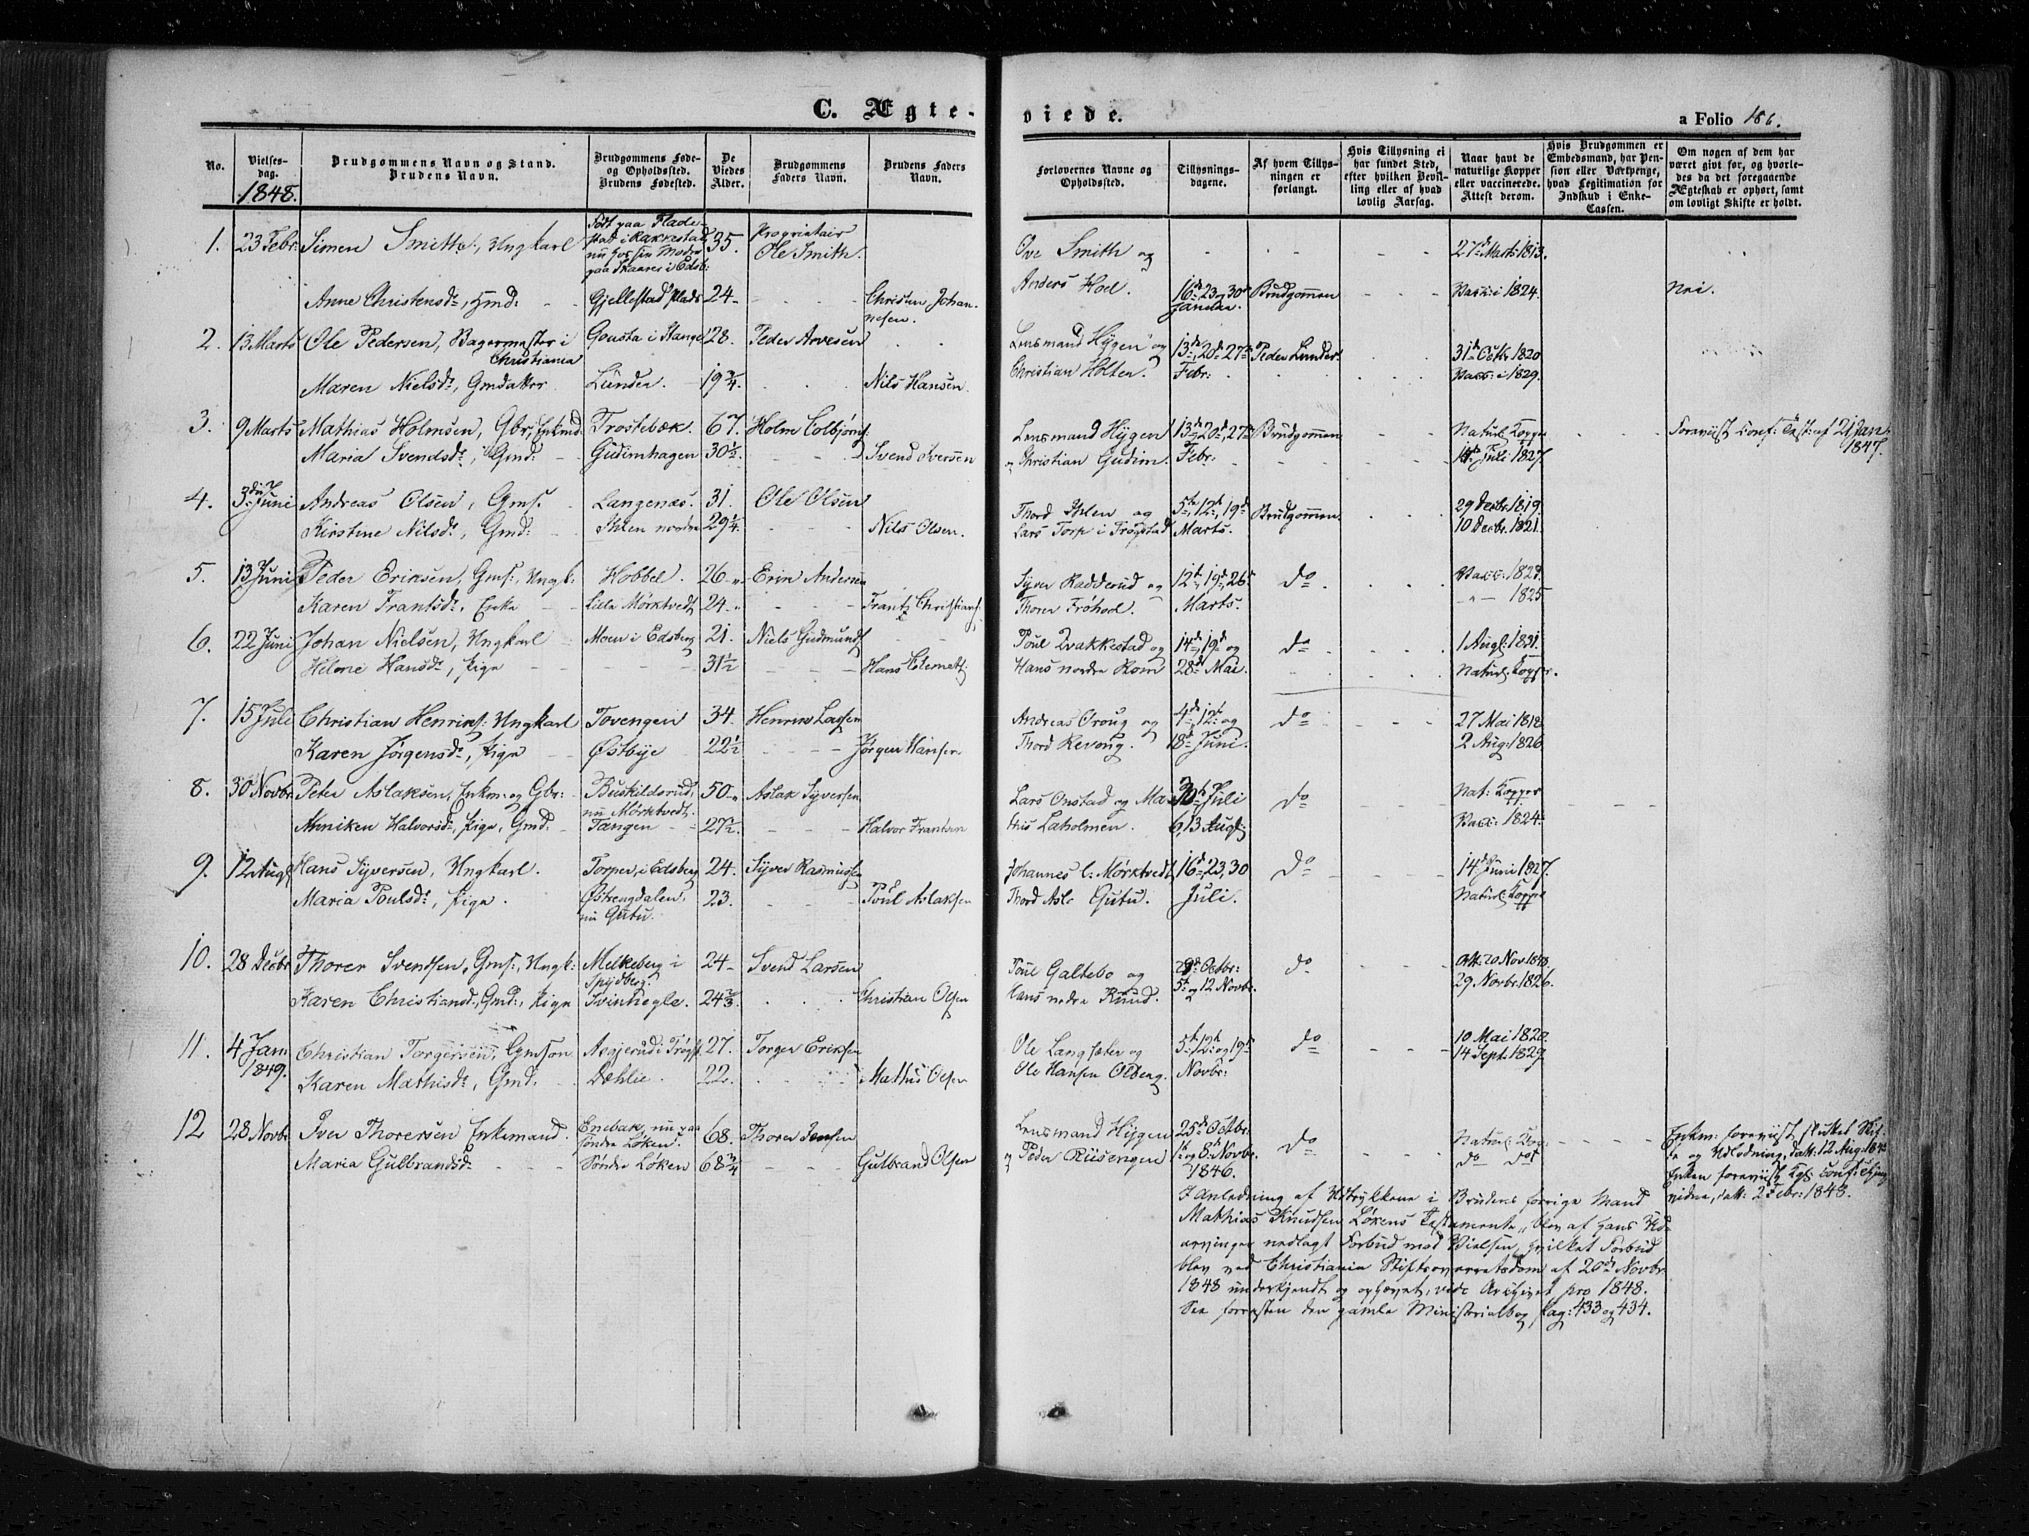 C. Ægte-
viede.
a Folio 186.
No.
Vielses-
dag.
1848.
Brudgommens Navn og Stand.
Brudens Navn.
Brudgommens Føde-
og Opholdssted.
Brudens Fødested.
De
Viedes
Alder.
Brudgommens
Faders Navn.
Brudens Faders
Navn.
Forlovernes Navne og
Opholdssted.
Tillysnings-
dagene.
Af hvem Tillys-
ningen er
forlangt.
Hvis Tillysning ei
har fundet Sted,
efter hvilken Bevil-
ling eller af hvad
lovlig Aarsag.
Naar havt de
naturlige Kopper
eller vaccinerede.
Attest derom.
Hvis Brudgommen er
Embedsmand, har Pen-
sion eller Vartpenge,
hvad Legitimation for
Indskud i Enke-
Cassen.
Om nogen af dem har
været givt før, og hvorle-
des da det foregaaende
Ægteskab er ophørt, samt
om lovligt Skifte er holdt.
1. 23 Febr. Simen Smith, Ungkarl
Født paa Flade-
stad i Rakkestad
nu hos sin Moder
paa Skaares i Edsb:
35. Proprietair
Ole Smith.
Ove Smith og
27d Marts 1813.
Anne Christensdr, Gmd: Gjellestad Plads 24 Christen Johan-
nesen.
Anders Hoel. 16d 23 og 30d
Januar. Brudgommen Vacc: i 1824. Nei.
2. 13 Marts Ole Pedersen, Bagermester i
Christiania
Gousta i Stange 28. Peder Arvesen
Lensmand Hÿgen og 13d, 20d 27d Peder Lunder. 31d Octbr 1820
Maren Nielsdr, Gmdatter Lunder. 19 3/4 Nils Hansen.
Christian Holten. Febr: Vacc: i 1829.
3. 9 Marts Mathias Holmsen, Gbr, Enkmd Trostebæk. 67. Holm Colbjørns
Lensmand Hÿgen 13d 20d, 27d Brudgommen Naturl. Kopper Foreviist Conf: Test: af 21 Jan
1847.
Maria Svendsdr, Gmd: Gudimhagen 30 1/2. Svend Iversen
og Christian Gudim. Febr: 14 Juli 1827.
4. 3die Juni Andreas Olsen, Gms. Langenæs. 31. Ole Olsen
Thord Ihlen og 5te, 12te, 19d Brudgommen. 29 Decbr. 1819.
Kirstine Nilsdr, Gmd: Ihlen nordre 29 1/4. Nils Olsen.
Lars Torp i Trøgstad Marts. 10 Decbr. 1821.
5. 13 Juni Peder Eriksen, Gms:, Ungk: Hobbel. 26 Erik Andersen
12te, 19d, 26d do Vacc: 1823.
Karen Frantsdr, Enke Lille Mørktvedt 24 Frantz Christians.
Thorer Frøhod. Marts. 1825
6. 22 Juni Johan Nielsen, Ungkarl Moen i Edsberg 21. Niels Gudmunds
Poul Trakkestad og 14de, 19d og do 1 Augl. 1831.
Helene Hansdr, Pige 31 1/2 Hans Klemets.
Hans nordre Kom 28d Mai Naturl: Kopper.
7. 15 Juli Christian Henriks: Ungkarl Tovengen 34. Henrik Lassen
Andreas Oroug og 4de, 12te og do 27 Mai 1818
Karen Jørgensdr, Pige Østbÿe 22 1/2 Jørgen Hansen
Thord Revoug. 18d Juni. 2 Aug: 1826.
8. 30 Novbr. Peter Aslaksen, Enkm. og Gbr: Buskildsrud,
nu Mørktvedt. 50 Aslak Sÿversen
Lars Onstad og Ma- 30te Juli do Nat: Kopper
Anniken Halvorsdr, Pige, Gmd: Tangen 27 1/2. Halvor Frantsen
this Laholmen. 6, 13 Augl: Vacc: 1824.
9. 12 Augl Hans Sÿversen, Ungkarl. Torper, i Edsberg 24. Sÿver Rasmussen
Johannes l. Mørktvedt, 16d 23, 30 do 14d Juni 1827.
Maria Poulsdr, Pige. Østengdalen,
nu Gutu. 23. Poul Aslaksen
Thord Asle Gutu. Juli. Naturl. Kopper
10. 28 Decbr Thorer Svendsen, Gms:, Ungk: Melkeberg i
Spÿdberg. 24 Svend Larsen
Poul Galtebo og 29d Octbr: do Att: 20 Nov 1848
Karen Christiansd, Gmd:, Pige Svinhegle. 24 2/3. Christian Olsen
Hans nedre Ruud. 5te og 12 Novbr. 29 Novbr. 1826.
11. 4 Jan
1849. Christian Torgersen, Gmson Asgjerud i Trøgst. 27. Torger Eriksen
Ole Langsæter og 5te, 12te og 19de do 10 Mai 1828
Karen Mathisdr, Gmd. Dæhlie. 22. Mathis Olsen
Ole Hansen Olberg. Novbr: 14 Sept. 1829
12 28 Novbr. Iver Thorersen Enkemand. Enebak, nu paa
søndre Løken. 68. Thorer Jensen
Lensmand Hÿgen 25d Octbr. do Naturl. Kop. Enkm: foreviist Skif-
te og Udlodning, dat: 12 Aug:
Maria Gulbrandsdr Søndre Løken 68 3/4 Gulbrand Olsen
og Peder Riisengen 1 og 8d Novbr. 1846. do do Enken foreviist Kgl:
dat: 2 Febr: 1848.
I Anledning af Udtrykkene i Brudens forrige Mand
Mathias Knudsen Løkens Testamente, blev af hans Ud-
arvinger nedlagt Forbud mod Vielsen, hvilket Forbud
blev ved Christiania Stiftsoverretsdom af 20d Novbr.
1848 underkjendt og ophævet, vide Archivet pro 1848.
See forresten den gamle Ministerialbog pag: 433 og 434.